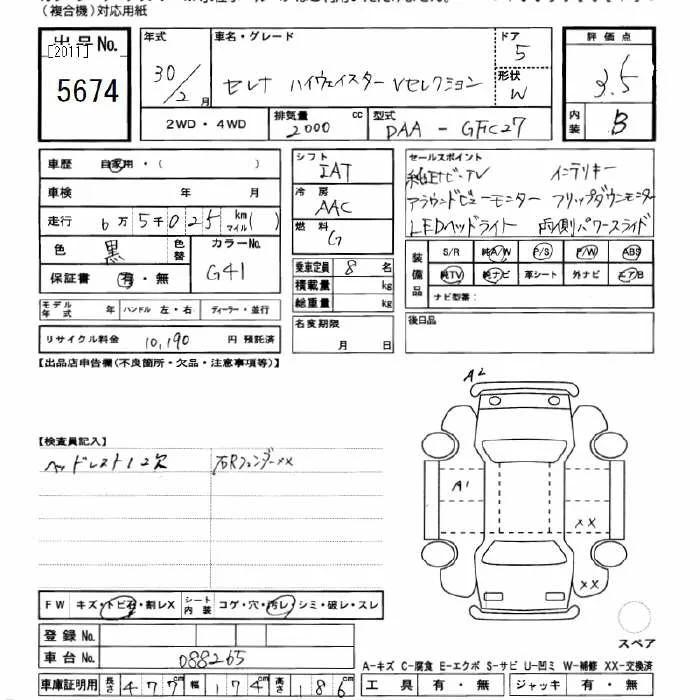 (複合機)対応用紙
出品No.
[2011]
5674
年式 30/2月
車名・グレード セレナ ハイウェイスター Vセレクション
ドア 5
形状 W
評価点 3.5
内装 B
2WD・4WD
排気量 2000 cc
型式 DAA-GFC27
車歴 自家用・( )
車検 年 月
走行 6万5千025km マイル( )
色 黒 色替 カラーNo. G41
保証書 有・無
モデル年式 年 ハンドル 左・右 ディーラー・並行
リサイクル料金 10,190 円 預託済
シフト IAT
冷房 AAC
燃料 G
乗車定員 8 名
積載量 kg
総重量 kg
名変期限 月 日
セールスポイント
純正ナビ・TV インテリキー
アラウンドビューモニター フリップダウンモニター
LEDヘッドライト 両側パワースライド
装備品 S/R 純A/W P/S P/W ABS
純TV 純ナビ 革シート 外ナビ エアB
ナビ型番:
後日品
【出品店申告欄(不良箇所・欠品・注意事項等)】
【検査員記入】
ヘッドレスト12欠 右Rフェンダーxx
A2
A1
XX
XX
スペア
FW キズ・トビ石・割レX シート内装 コゲ・穴・汚レ・シミ・破レ・スレ
登録No.
車台No. 088265
車庫証明用 長さ 477 幅 174 高さ 186
A-キズ C-腐食 E-エクボ S-サビ U-凹ミ W-補修 XX-交換済
工具 有・無 ジャッキ 有・無